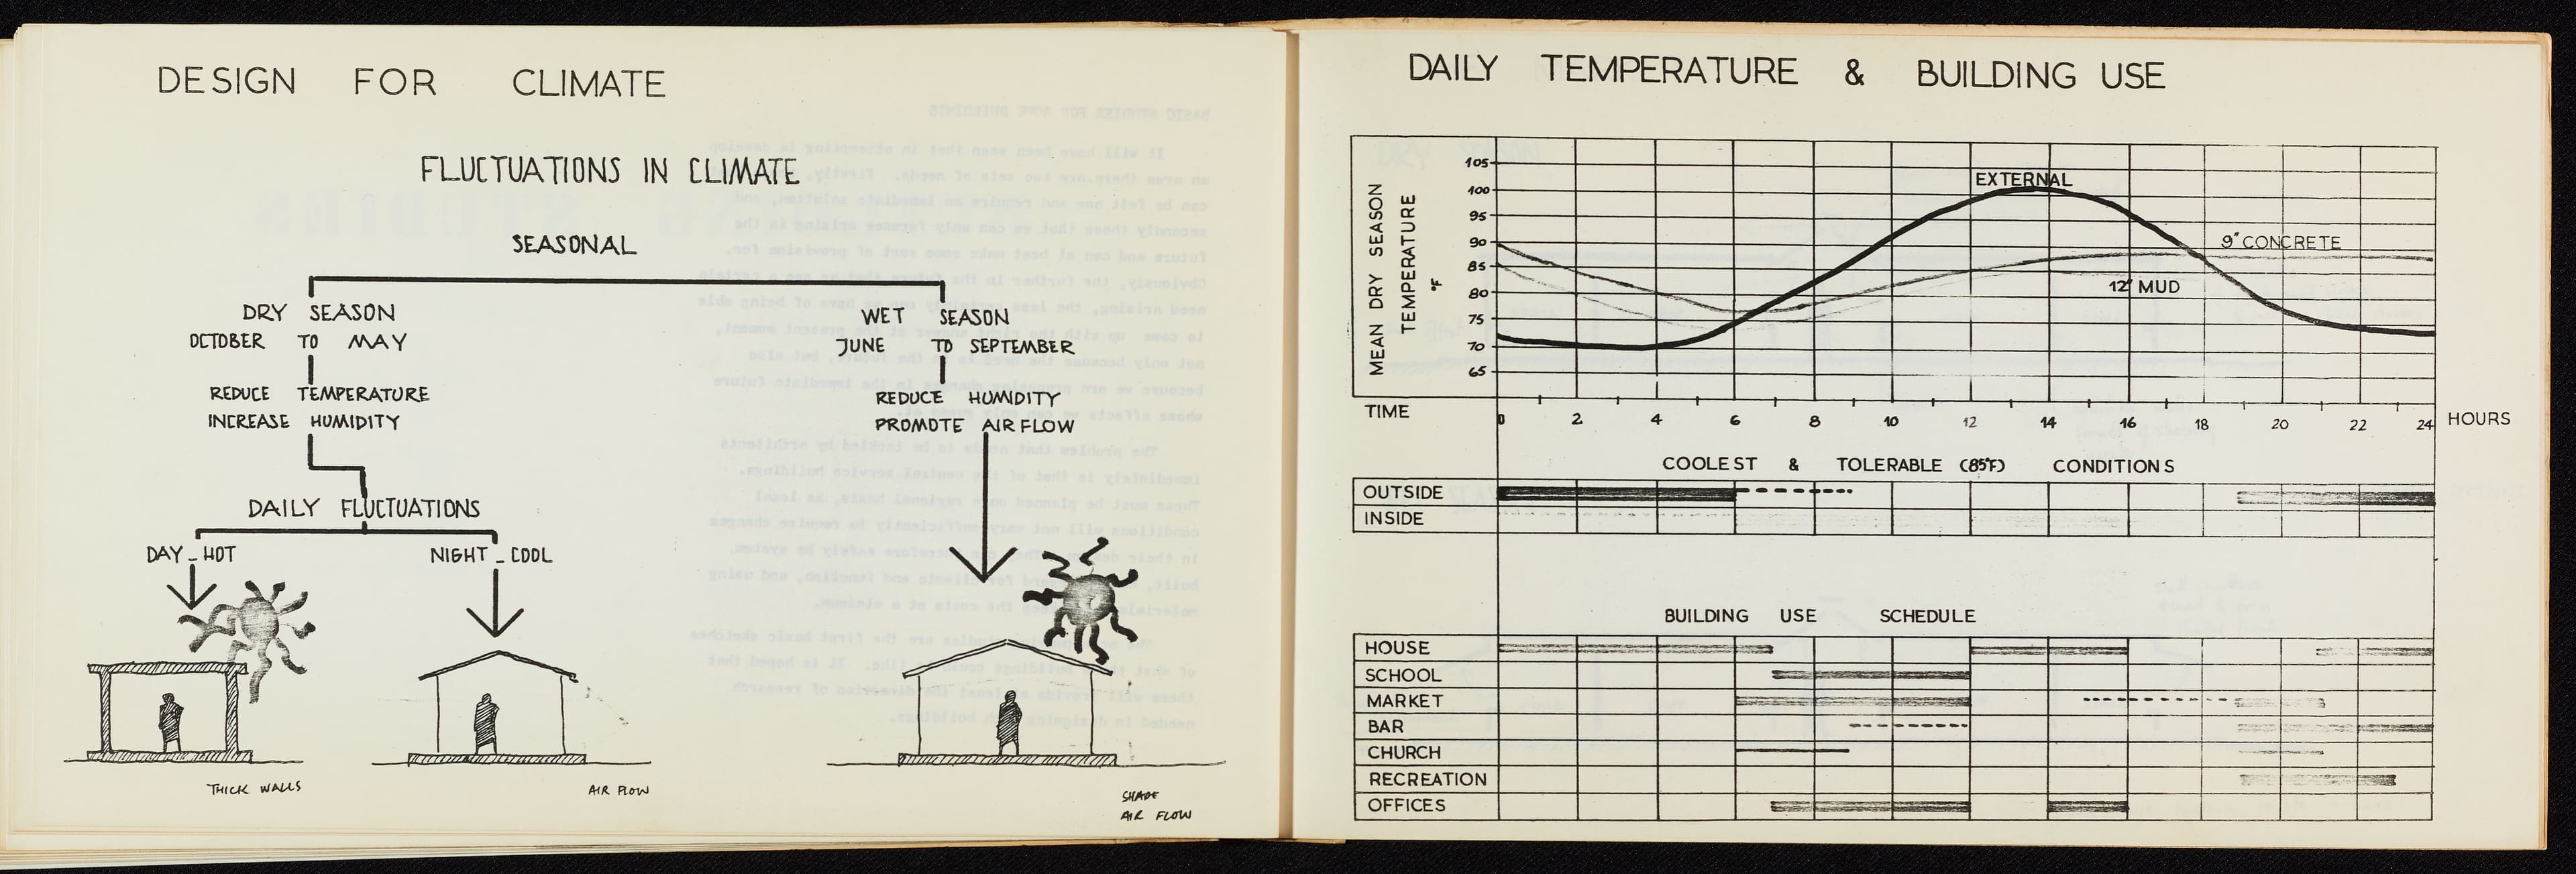 DESIGN FOR CLIMATE
FLUCTUATIONS IN CLIMATE
SEASONAL
DRY SEASON
OCTOBER TO MAY
REDUCE TEMPERATURE
INCREASE HUMIDITY
DAILY FLUCTUATIONS
DAY _ HOT
NIGHT _ COOL
THICK WALLS
AIR FLOW
WET SEASON
JUNE TO SEPTEMBER
REDUCE HUMIDITY
PROMOTE AIR FLOW
SHADE
AIR FLOW
DAILY TEMPERATURE & BUILDING USE
MEAN DRY SEASON
TEMPERATURE
°F
105
100
95
90
85
80
75
70
65
EXTERNAL
9" CONCRETE
12" MUD
TIME
0 2 4 6 8 10 12 14 16 18 20 22 24
HOURS
COOLEST & TOLERABLE (85°F) CONDITIONS
OUTSIDE
INSIDE
BUILDING USE SCHEDULE
HOUSE
SCHOOL
MARKET
BAR
CHURCH
RECREATION
OFFICES